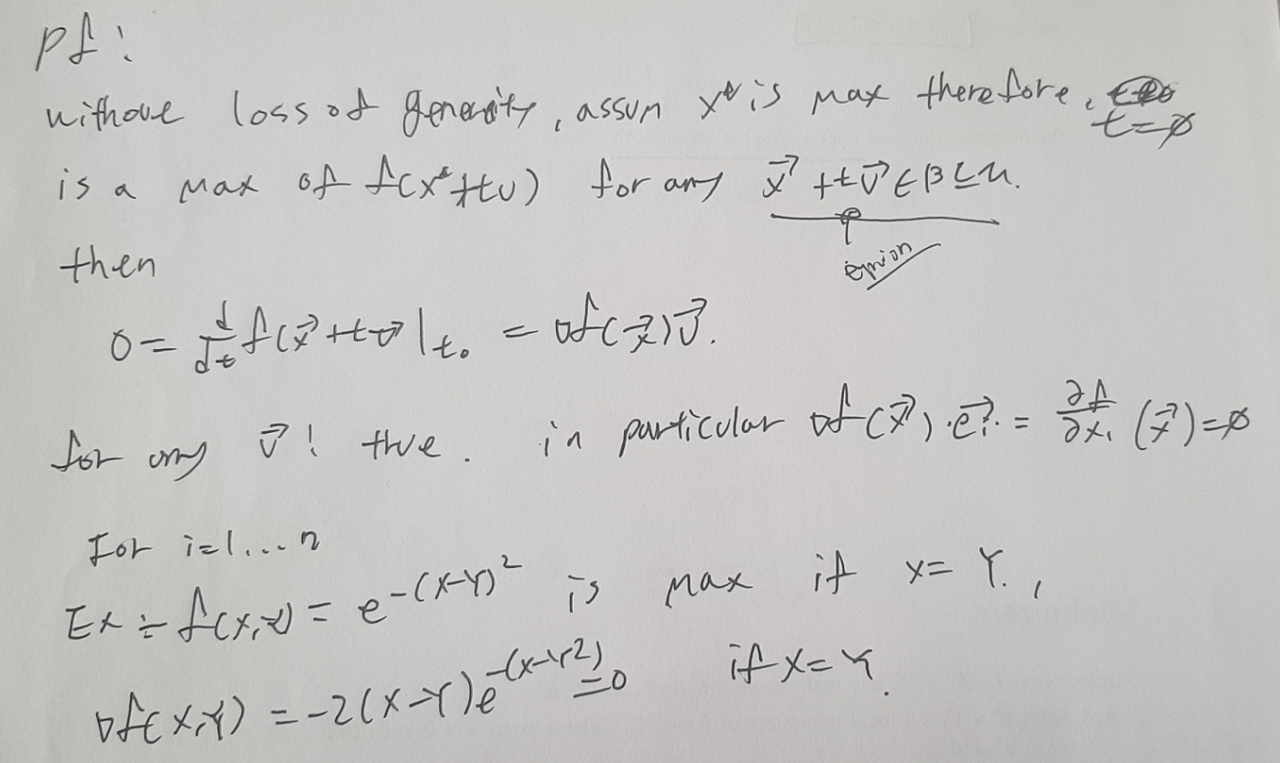 pf:
without loss of generity, assum x* is max therefore, t=∅
is a max of f(x*+tv) for any x⃗+tv⃗ ∈ B ⊆ U.
then
0 = d/dt f(x⃗+tv⃗ |t₀ = ∇f(x⃗)v⃗.
for any v⃗! true. in particular ∇f(x⃗)·e⃗ᵢ. = ∂f/∂xᵢ (x⃗)=∅
For i=1...n
Ex ÷ f(x,y) = e^-(x-Y)² is max if x= Y.,
∇f(x,Y) = -2(x-Y)e^-(x-Y²) =0 if x=Y.